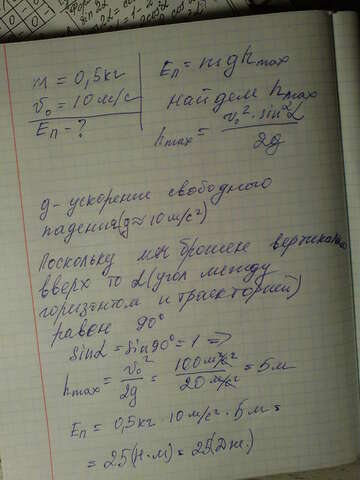 m = 0,5кг
v₀ = 10м/с
Eп - ?
Eп = mghmax
найдем hmax
hmax = v₀²·sin²α / 2g
g - ускорение свободного
падения (g ≈ 10м/с²)
Поскольку мяч брошен вертикально
вверх то α (угол между
горизонтом и траекторией)
равен 90°
sinα = sin90° = 1 =>
hmax = v₀² / 2g = 100м²/с² / 20м/с² = 5м
Eп = 0,5кг · 10м/с² · 5м =
= 25(Н·м) = 25(Дж.)